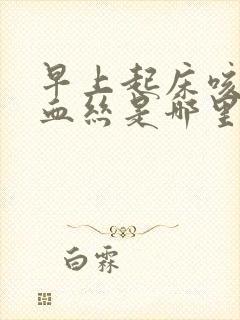 早上起床咳
血丝是哪里
白霖